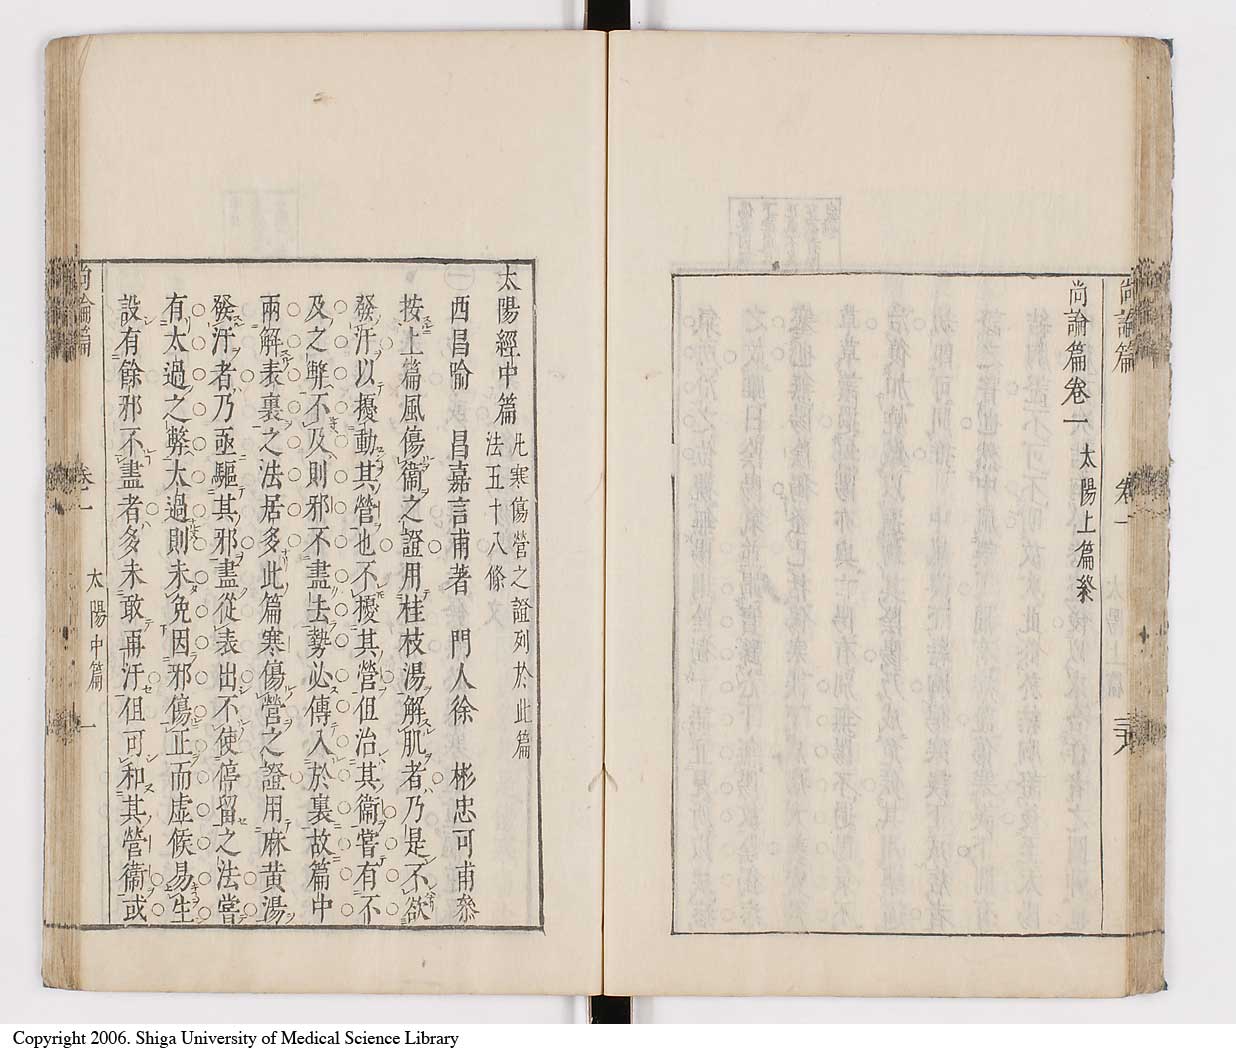 尚論篇卷一 太陽上篇終
尚論篇 卷一
太陽經中篇 凡寒傷營之證列於此篇
法五十八條
西昌喻 昌嘉言甫著 門人徐 彬忠可甫叅
按上篇風傷衞之證用桂枝湯解肌者乃是不欲
發汗以擾動其營也不擾其營但治其衞嘗有不
及之弊不及則邪不盡去勢必傳入於裏故篇中
兩解表裏之法居多此篇寒傷營之證用麻黃湯
發汗者乃亟驅其邪盡從表出不使停留之法嘗
有太過之弊太過則未免因邪傷正而虛候易生
設有餘邪不盡者多未敢再汗但可和其營衞或
尚論篇 卷一 太陽中篇 一
Copyright 2006. Shiga University of Medical Science Library